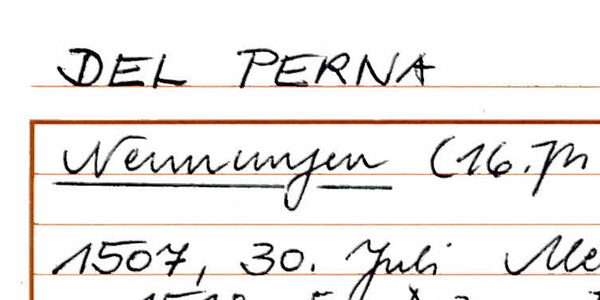 DEL PERNA
Nennungen (16.Jh
1507, 30. Juli Me